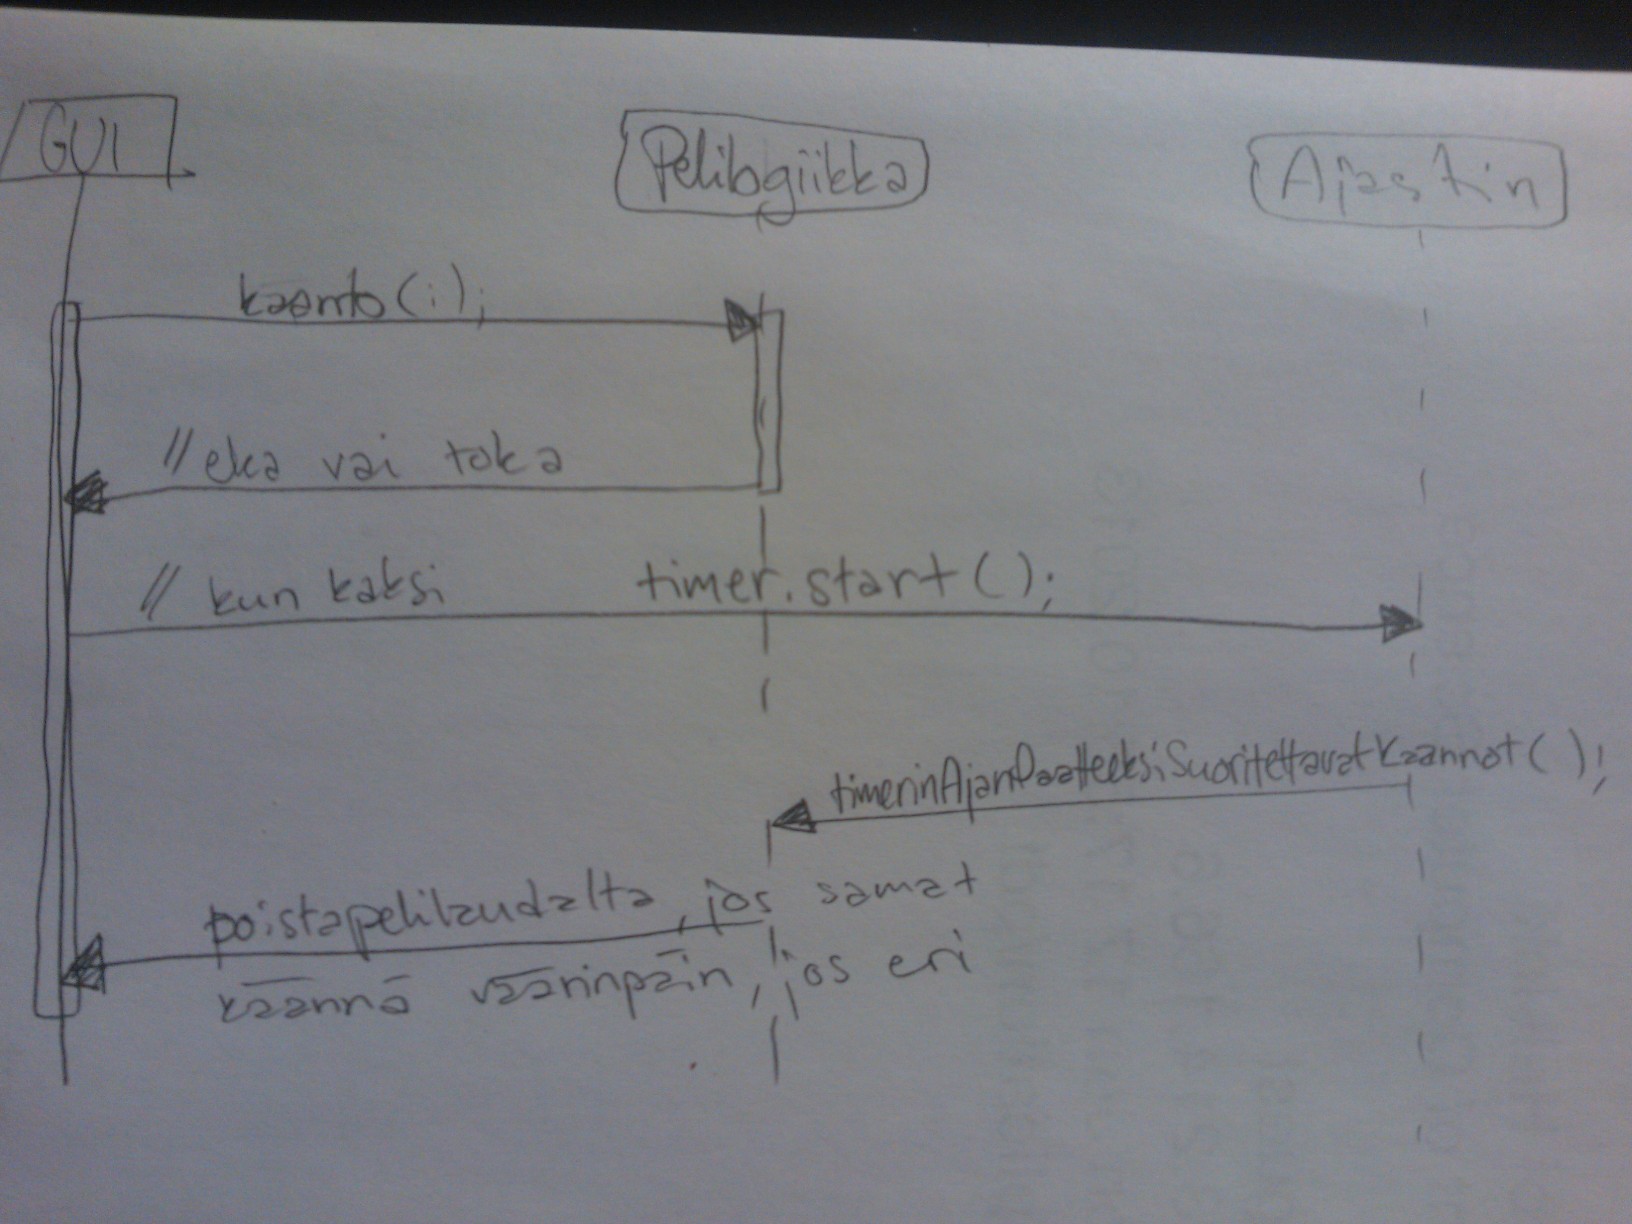 GUI
Pelilogiikka
Ajastin
kaanto(i);
// eka vai toka
// kun kaksi timer.start();
timerinAjanPaatteeksiSuoritettavatKaannot();
poistapelilaudalta, jos samat
käännä väärinpäin, jos eri